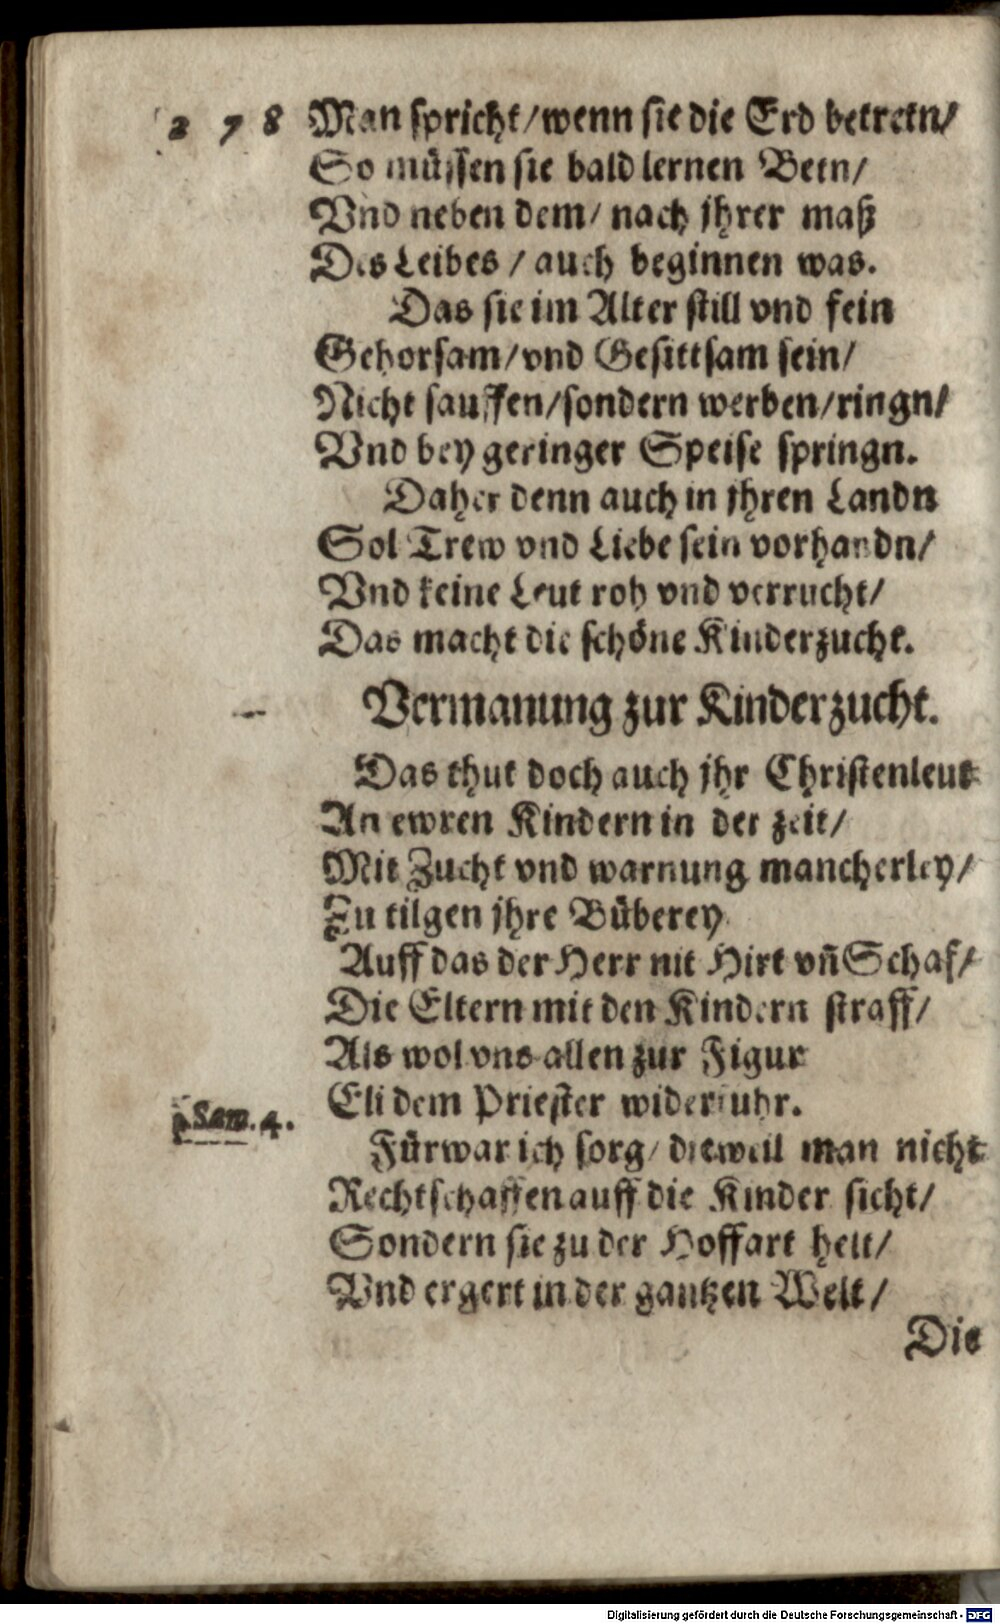 2 7 8 Man spricht/wenn sie die Erd betretn/
So müssen sie bald lernen Betn/
Vnd neben dem/ nach jhrer maß
Des Leibes / auch beginnen was.
Das sie im Alter still vnd fein
Gehorsam/vnd Gesittsam sein/
Nicht sauffen/sondern werben/ringn/
Vnd bey geringer Speise springn.
Daher denn auch in jhren Landn
Sol Trew vnd Liebe sein vorhandn/
Vnd keine Leut roh vnd verrucht/
Das macht die schöne Kinderzucht.
Vermanung zur Kinderzucht.
Das thut doch auch jhr Christenleut
An ewren Kindern in der zeit/
Mit Zucht vnd warnung mancherley/
Zu tilgen jhre Büberey
Auff das der Herr nit Hirt vñ Schaf/
Die Eltern mit den Kindern straff/
Als wol vns allen zur Figur
Eli dem Priester widerfuhr.
1. Sam. 4.
Fürwar ich sorg/ dieweil man nicht
Rechtschaffen auff die Kinder sicht/
Sondern sie zu der Hoffart helt/
Vnd ergert in der gantzen Welt/
Die
Digitalisierung gefördert durch die Deutsche Forschungsgemeinschaft - DFG